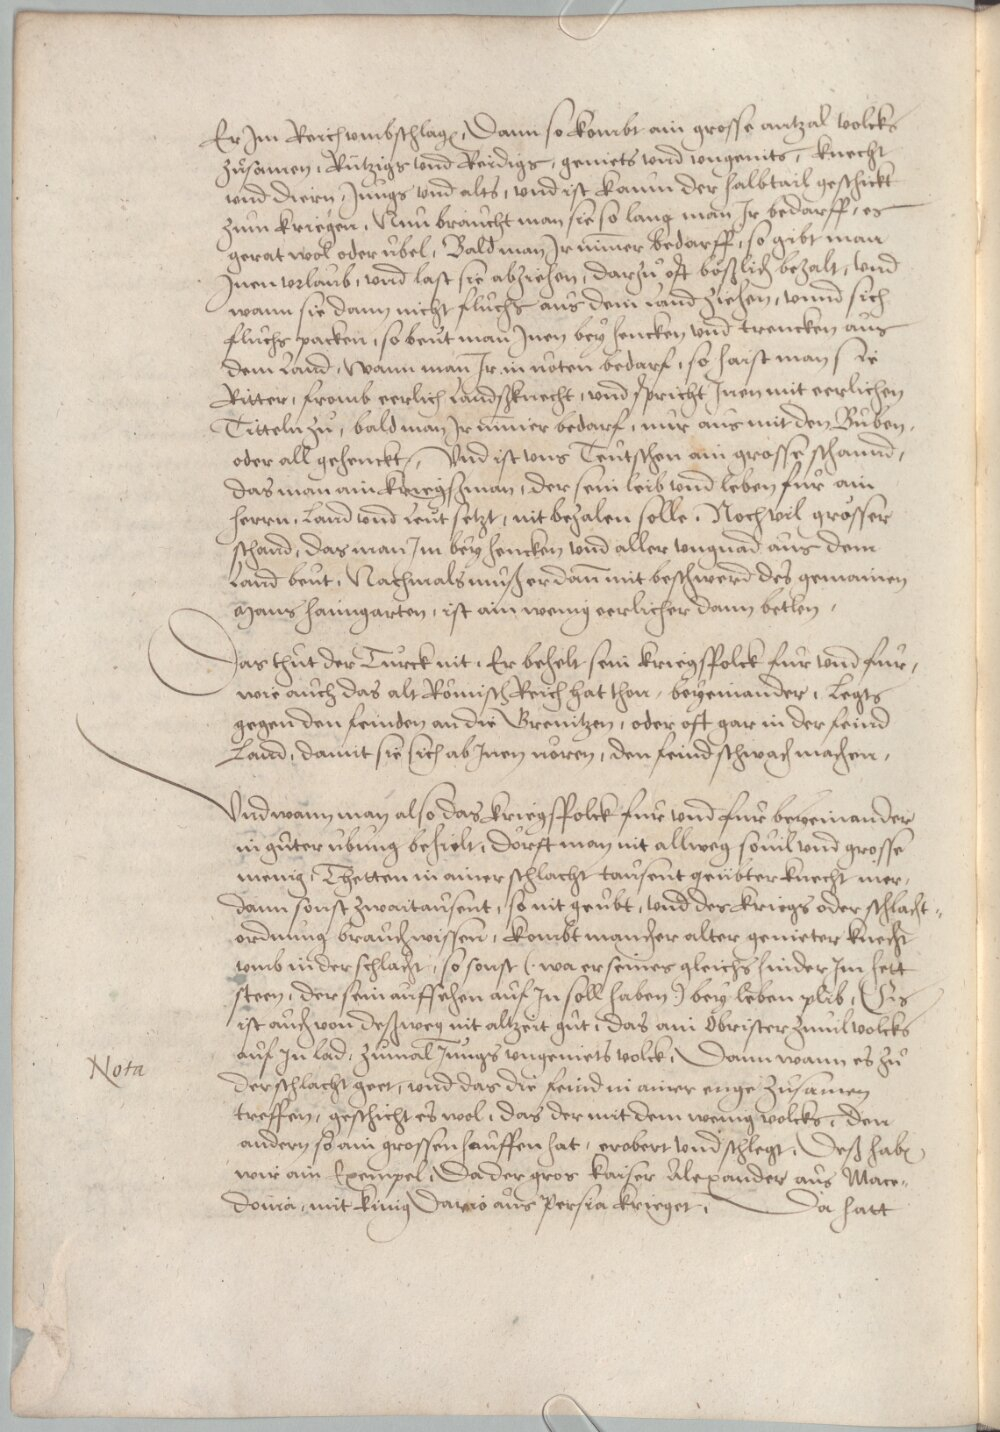 Er Im Reich umbschlag, Dann so kombt ain grosse antzal volcks
zusamen, Rützigs und Reidigs, geniets und ungenits, knecht
und diern, Jungs und alts, und ist kaum der halbtail geschickt
zum kriegen, Nun braucht man sie so lang man Ir bedarff, es
gerat wol oder übel, Bald man Ir nimer bedarff, so gibt man
Inen urlaub, und last sie abziehen, darzu oft bößlich bezalt, und
wann sie dann nicht fluchs aus dem land ziehen, unnd sich
fluchs packen, so beut man Inen bey hencken und trencken aus
dem Land, Wann man Ir in nöten bedarf, so haist man sie
Ritter, fromb eerlich Landßknecht, und spricht Inen mit eerlichen
Titteln zu, bald man Ir nimer bedarf, nur aus mit den Buben,
oder all gehenckt, Und ist uns Teutschen ain grosse schannd,
das man ain kriegßman, der sein leib und leben für ain
herrn, Land und Leut setzt, nit bezalen solle, Noch vil grösser
schand, das man Im bey hencken und aller ungnad aus dem
Land beut, Nachmals muß er dann mit beschwerd des gemainen
Mans haimgarten, ist ain wenig eerlicher dann betlen,
Das thut der Türck nit, Er behelt sein kriegsfolck für und für,
wie auch das alt Römisch Reich hat thon, beyeinander, Legts
gegen den feinden an die Grenitzen, oder oft gar in der feind
Land, damit sie sich ab Inen nören, den feind schwach machen,
Und wann man also das kriegsfolck für und für beyeinander
in guter übung behielt, dörft man nit allweg sovil und grosse
menig, Thetten in ainer schlacht tausent geübter knecht mer,
dann sonst zwaitausent, so nit geübt, und des kriegs oder schlacht-
ordnung brauch wissen, kombt mancher alter genieter knecht
umb in der schlacht, so sonst (wa er seines gleichs hinder Im hett
steen, der sein auffsehen auf In soll haben) bey leben plib, Es
ist auch von deßweg nit altzeit gut, das ain Obrister zuvil volcks
auf In lad, zumal Jungs ungeniets volck, Dann wann es zu
Nota
der schlacht geet, und das die feind in ainer enge zusamen
treffen, geschicht es wol, das der mit dem wenig volcks, den
andern so ain grossen hauffen hat, erobert und schlegt, Deß hab
wir ain Exempel, Da der gros kaiser Alexander aus Mace-
donia, mit künig Dario aus Persia krieget, Da hatt